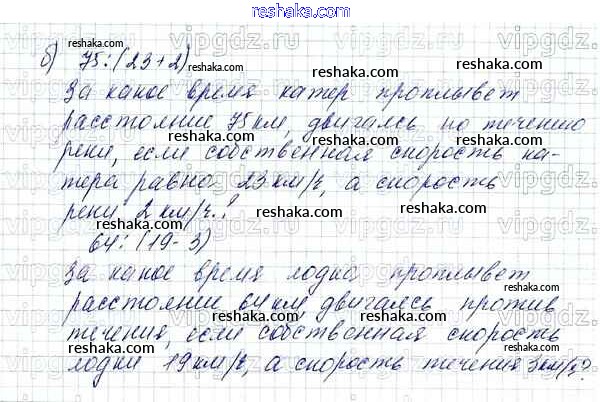 reshaka.com
б) 75:(23+2)
За какое время катер проплывет
расстояние 75 км, двигаясь по течению
реки, если собственная скорость ка-
тера равна 23 км/ч, а скорость
реки 2 км/ч.?
64:(19-3)
За какое время лодка проплывет
расстоянии 64 км, двигаясь против
течения, если собственная скорость
лодки 19 км/ч, а скорость течения 3 км/ч?